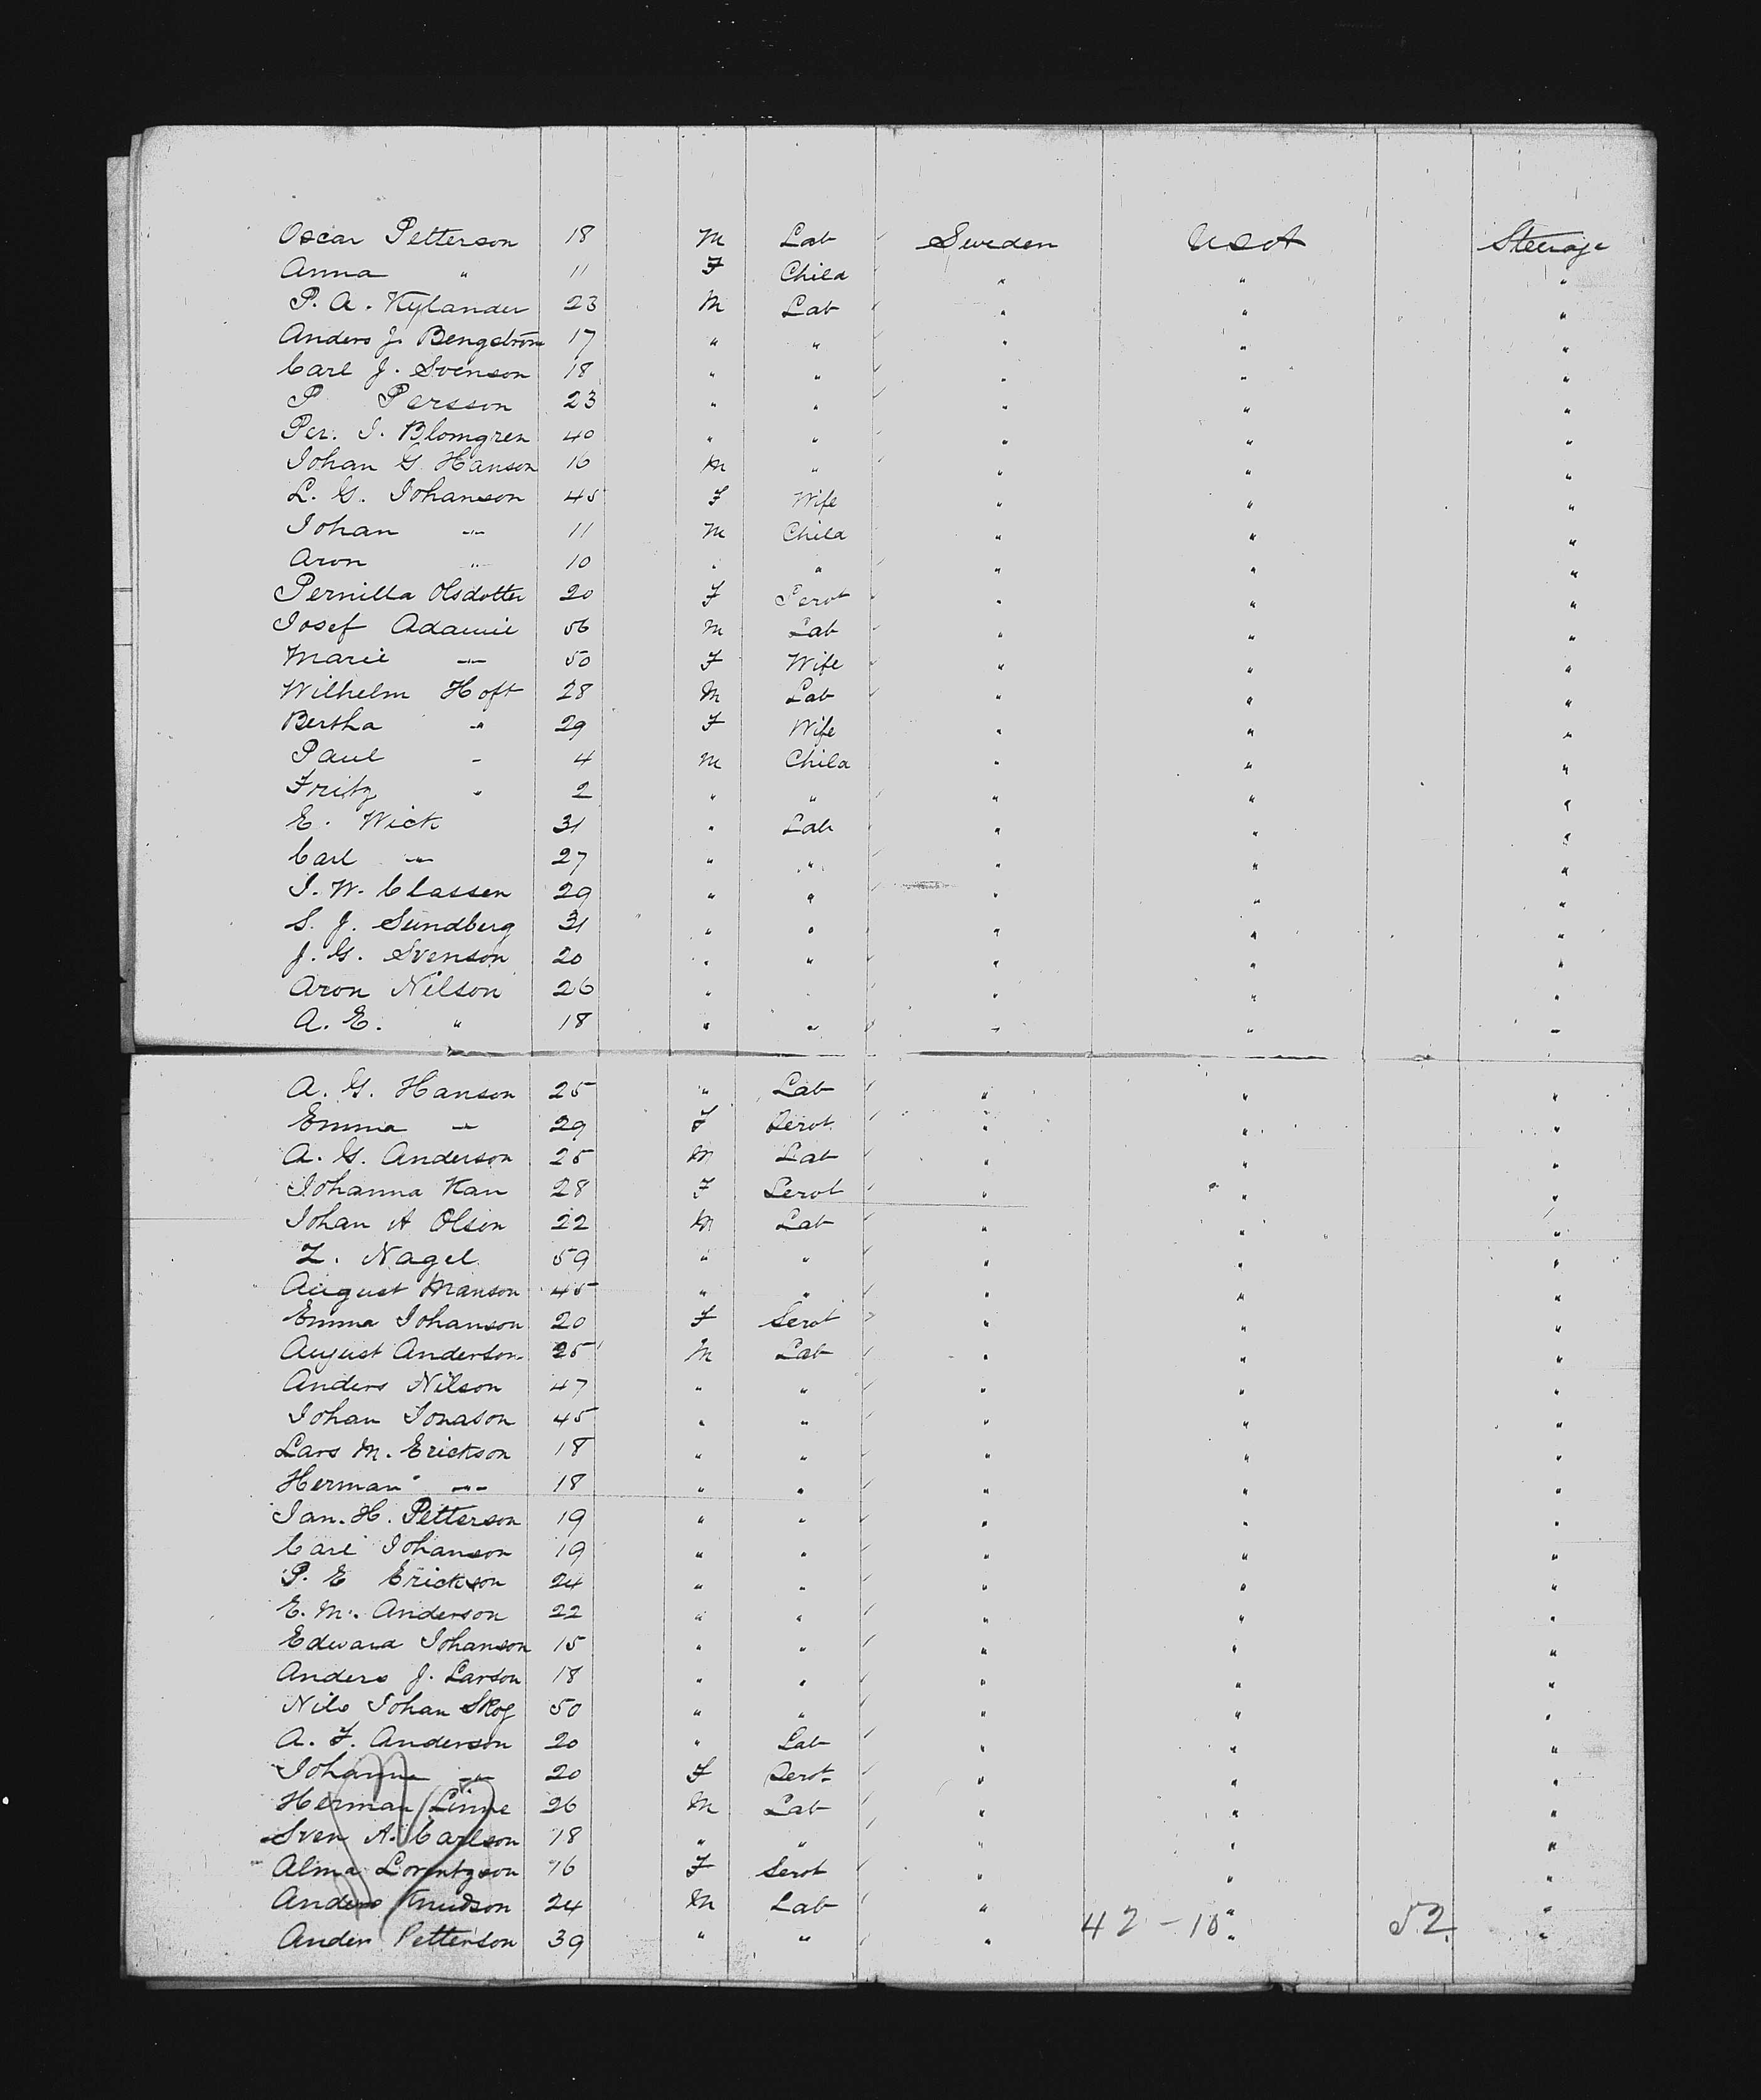 Oscar Petterson 18 M Lab Sweden USA Steerage
Anna " 11 F Child " " "
P. A. Kylander 23 M Lab " " "
Anders J. Bengström 17 " " " " "
Carl J. Svenson 18 " " " " "
P Persson 23 " " " " "
Per. I. Blomgren 40 " " " " "
Johan G. Hanson 16 M " " " "
L. G. Johanson 45 F Wife " " "
Johan " 11 M Child " " "
Aron " 10 " " " " "
Pernilla Olsdotter 20 F Servt " " "
Josef 56 M Lab " " "
Marie " 50 F Wife " " "
Wilhelm Hoft 28 M Lab " " "
Bertha " 29 F Wife " " "
Paul " 4 M Child " " "
Fritz " 2 " " " " "
E. Wick 31 " Lab " " "
Carl " 27 " " " " "
I. W. Classen 29 " " " " "
S. J. Sundberg 31 " " " " "
J. G. Svenson 20 " " " " "
Aron Nilson 26 " " " " "
A. E. " 18 " " " " "
A. G. Hanson 25 " Lab " " "
Emma " 29 F Servt " " "
A. G. Anderson 25 M Lab " " "
Johanna Kan 28 F Servt " " "
Johan A Olson 22 M Lab " " "
Z. Nagel 59 " " " " "
August Manson 45 " " " " "
Emma Johanson 20 F Servt " " "
August Anderson 25 M Lab " " "
Anders Nilson 47 " " " " "
Johan Jonason 45 " " " " "
Lars M. Erickson 18 " " " " "
Herman " 18 " " " " "
Jan. H. Petterson 19 " " " " "
Carl Johanson 19 " " " " "
P. E Erickson 24 " " " " "
E. M. Anderson 22 " " " " "
Edward Johanson 15 " " " " "
Anders J. Larson 18 " " " " "
Nils Johan Skog 50 " " " " "
A. F. Anderson 20 " Lab " " "
Johanna " 20 F Servt " " "
Herman Linne 26 M Lab " " "
Sven A. Carlson 18 " " " " "
Alma Lorentzson 16 F Servt " " "
Anders Knudson 24 M Lab " " "
Anders Petterson 39 " " " 42 - 10 " 52 "